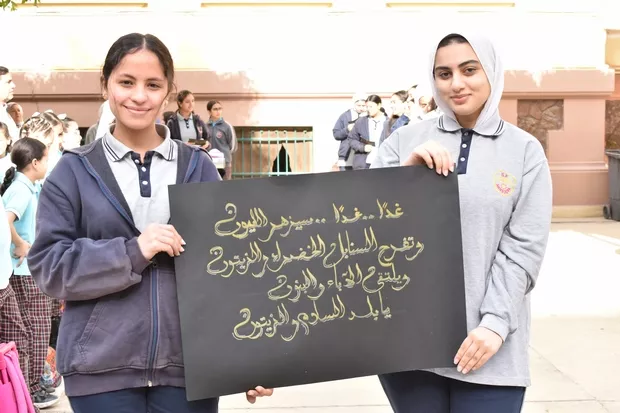 غدًا .. غدًا .. سيزهر الليمون
وتفرح السنابل الخضراء والزيتون
ويلتقي الآباء والبنون
يا بلد السلام والزيتون